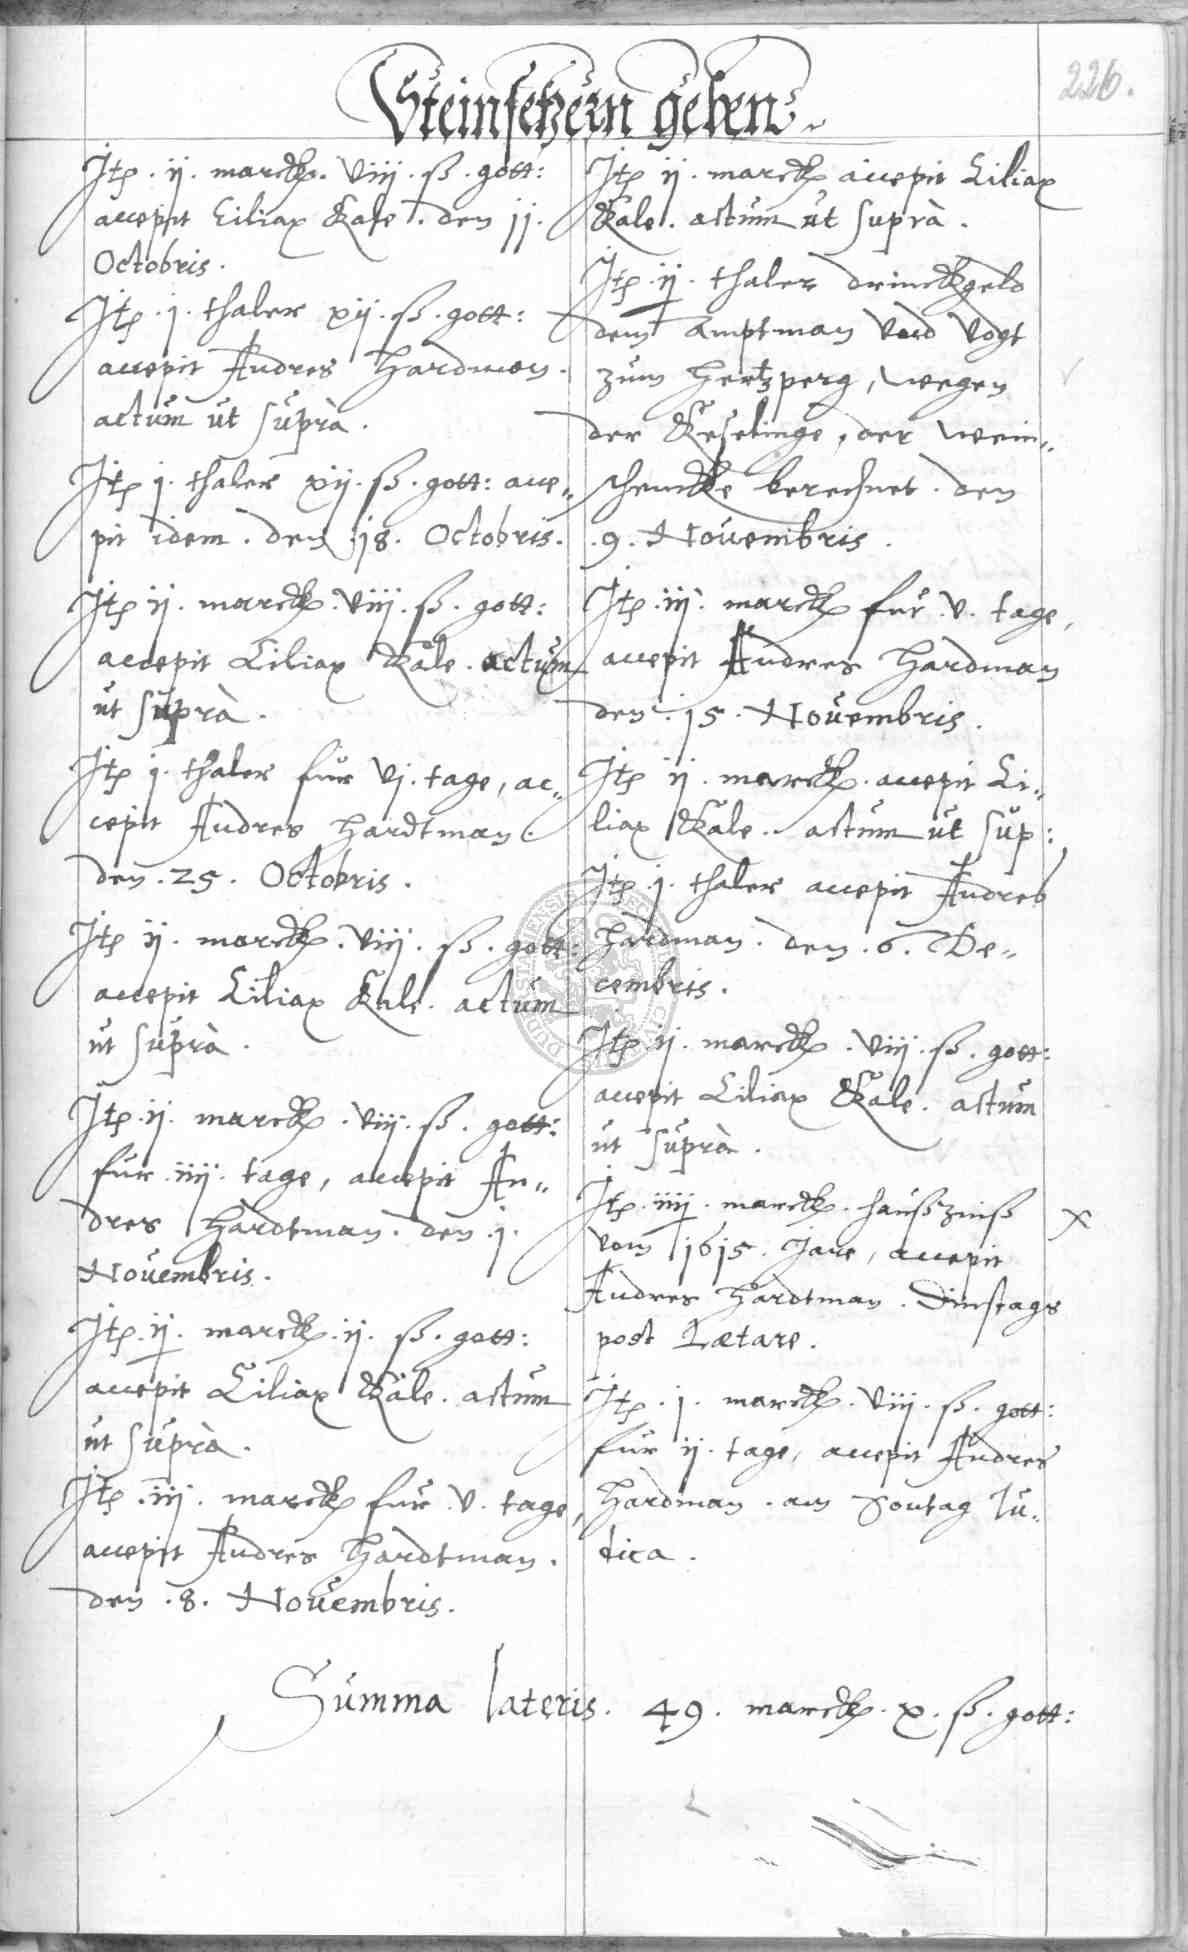 226.
Steinsetzern geben
Itp . ij . marck . viij . ß . gott:
accepit Ciliax Kale . den jj.
Octobris .
Itp . j . thaler xij . ß . gott:
accepit Andres Hardman .
actum ut suprà .
Itp j . thaler xij . ß . gott: acce„
pit idem . den . j8 . Octobris .
Itp ij . marck . viij . ß . gott:
accepit Ciliax Kale . actum
ut suprà .
Itp j . thaler fur vj . tage, ac„
cepit Andres Hardtman .
den . 25 . Octobris .
Itp ij . marck . viij . ß . gott:
accepit Ciliax Kale . actum
ut suprà .
Itp . ij . marck . viij . ß . gott:
fur . iiij . tage, accepit An„
dres Hardtman . den . j .
Novembris .
Itp . ij . marck . ij . ß . gott:
accepit Ciliax Kale . actum
ut suprà .
Itp . iij . marck fur . v . tage,
accepit Andres Hardtman .
den . 8 . Novembris .
Itp ij . marck accepit Ciliax
Kale . actum ut suprà .
Itp . ij . thaler drinckgeld
dem Amptman vnd Vogt
zum Hertzperg, wegen
der Keselinge, der wein„
schencke berechnet . den
. 9 . Novembris .
Itp . iij . marck fur . v . tage,
accepit Andres Hardman
den . j5 . Novembris .
Itp ij . marck . accepit Ci„
liax Kale . actum ut sup:
Itp . j . thaler accepit Andres
Hardman . den . 6 . De„
cembris .
Itp . ij . marck . viij . ß . gott:
accepit Ciliax Kale . actum
ut suprà .
Itp . iiij . marck . haußzinß
vom j6j5 . Jare, accepit
Andres Hardtman . Dinstags
post Lætare .
Itp . j . marck . viij . ß . gott:
fur ij . tage, accepit Andres
Hardman . am Sontag Ju„
dica .
Summa lateris . 49 . marck . x . ß . gott: